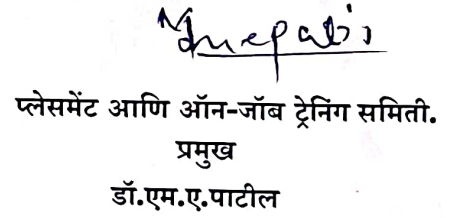 प्लेसमेंट आणि ऑन-जॉब ट्रेनिंग समिती.
प्रमुख
डॉ.एम.ए.पाटील